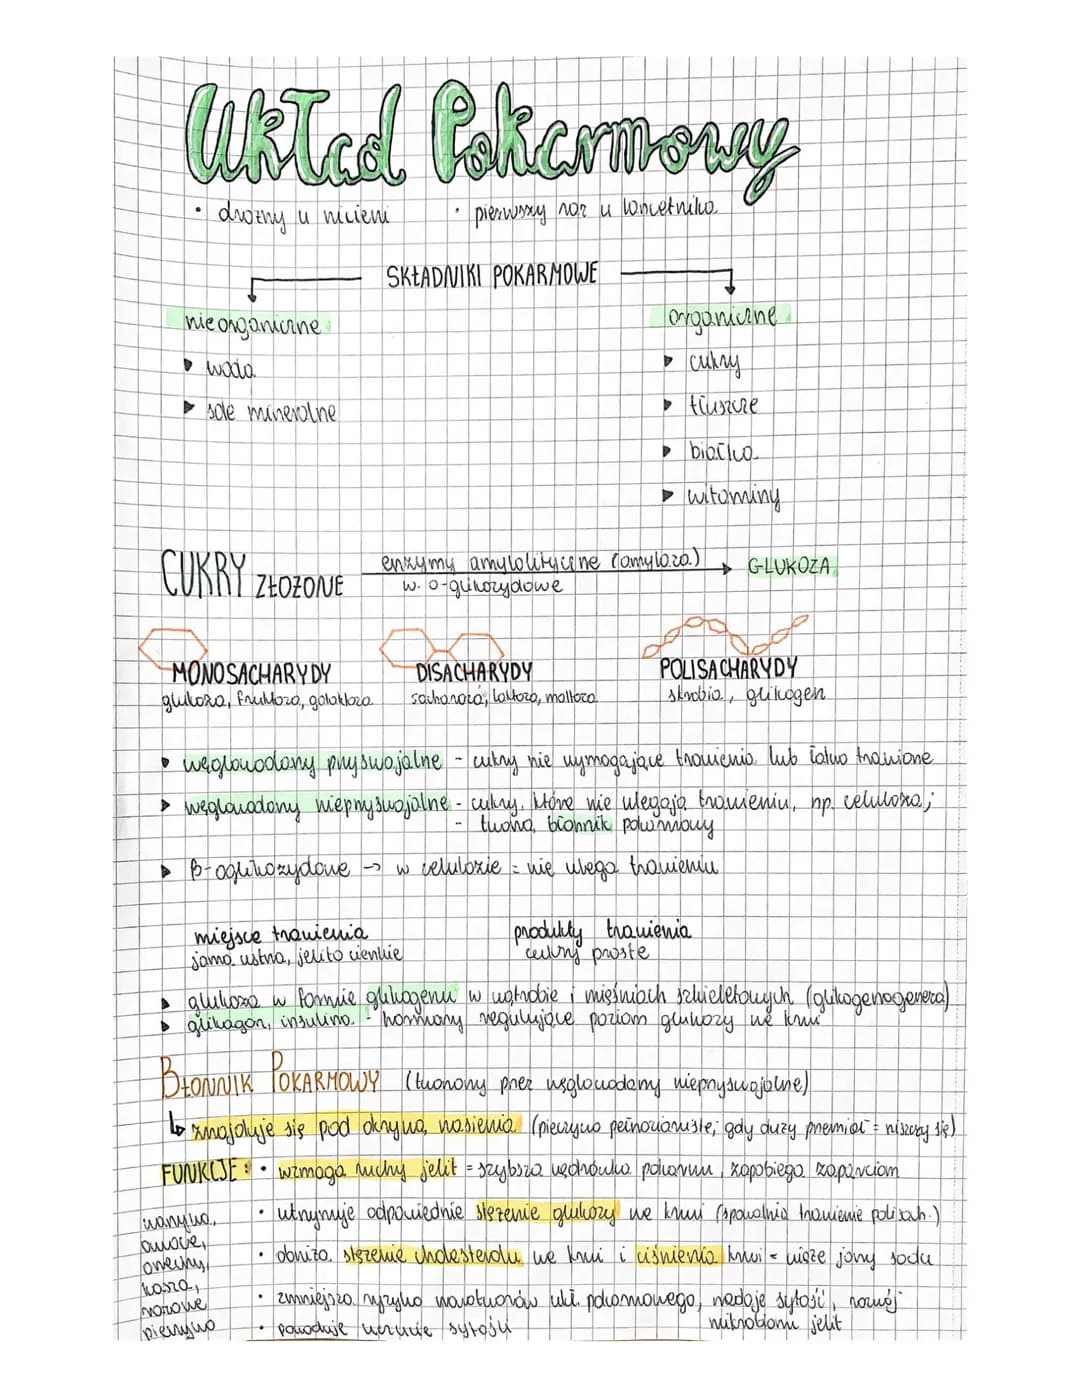 Układ Pokarmowy
• drożny u nicieni • pierwszy raz u lancetnika
SKŁADNIKI POKARMOWE
nieorganiczne organiczne
▸ woda ▸ cukry
▸ sole mineralne ▸ tłuszcze
▸ białka
▸ witaminy
CUKRY ZŁOŻONE enzymy amylolityczne (amylaza) → GLUKOZA
w. o-glikozydowe
MONOSACHARYDY DISACHARYDY POLISACHARYDY
glukoza, fruktoza, galaktoza sacharoza, laktoza, maltoza skrobia, glikogen
▸ węglowodany przyswajalne - cukry nie wymagające trawienia lub łatwo trawione
▸ węglowodany nieprzyswajalne - cukry, które nie ulegają trawieniu, np. celuloza;
- tworzą błonnik pokarmowy
▸ β-oglikozydowe → w celulozie = nie ulega trawieniu
miejsce trawienia produkty trawienia
jama ustna, jelito cienkie cukry proste
▸ glukoza w formie glikogenu w wątrobie i mięśniach szkieletowych (glikogenogeneza)
▸ glikagon, insulina - hormony regulujące poziom glukozy we krwi
BŁONNIK POKARMOWY (tworzony przez węglowodany nieprzyswajalne)
↳ znajduje się pod okrywą nasienia (pieczywo pełnoziarniste; gdy duży przemiał = niszczy się)
FUNKCJE: • wzmaga ruchy jelit = szybsza wędrówka pokarmu, zapobiega zaparciom
• utrzymuje odpowiednie stężenie glukozy we krwi (spowalnia trawienie polisach.)
• obniża stężenie cholesterolu we krwi i ciśnienia krwi = wiąże jony sodu
• zmniejsza ryzyko nowotworów ukł. pokarmowego, nadaje sytość, rozwój
mikrobiomu jelit
• powoduje uczucie sytości
warzywa,
owoce,
orzechy,
kasza,
razowe
pieczywo